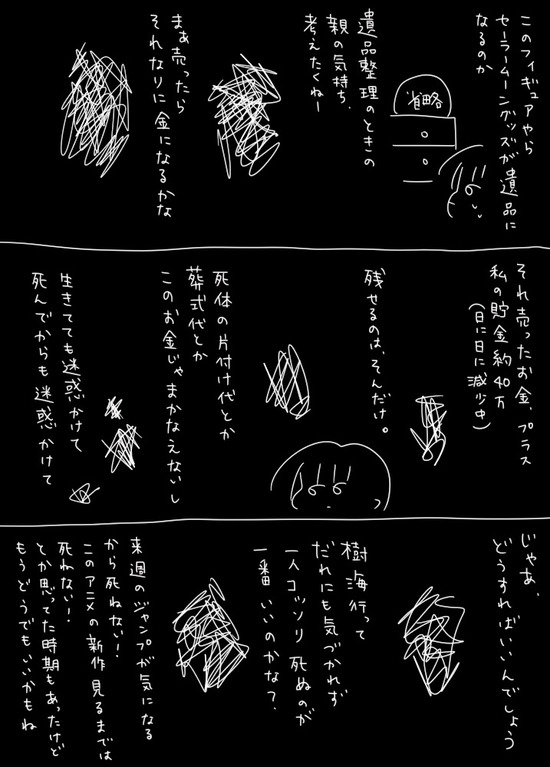 このフィギュアやら
セーラームーングッズが遺品に
なるのか
省略
遺品整理のときの
親の気持ち、
考えたくねー
まぁ売ったら
それなりに金になるかな
それ売ったお金、プラス
私の貯金約40万
(日に日に減少中)
残せるのは、そんだけ。
死体の片付け代とか
葬式代とか
このお金じゃまかなえないし
生きてても迷惑かけて
死んでからも迷惑かけて
じゃあ、
どうすればいいんでしょう
樹海行って
だれにも気づかれず
一人コッソリ死ぬのが
一番いいのかな?
来週のジャンプが気になる
から死ねない!
このアニメの新作見るまでは
死ねない!
とか思ってた時期もあったけど
もうどうでもいいかもね